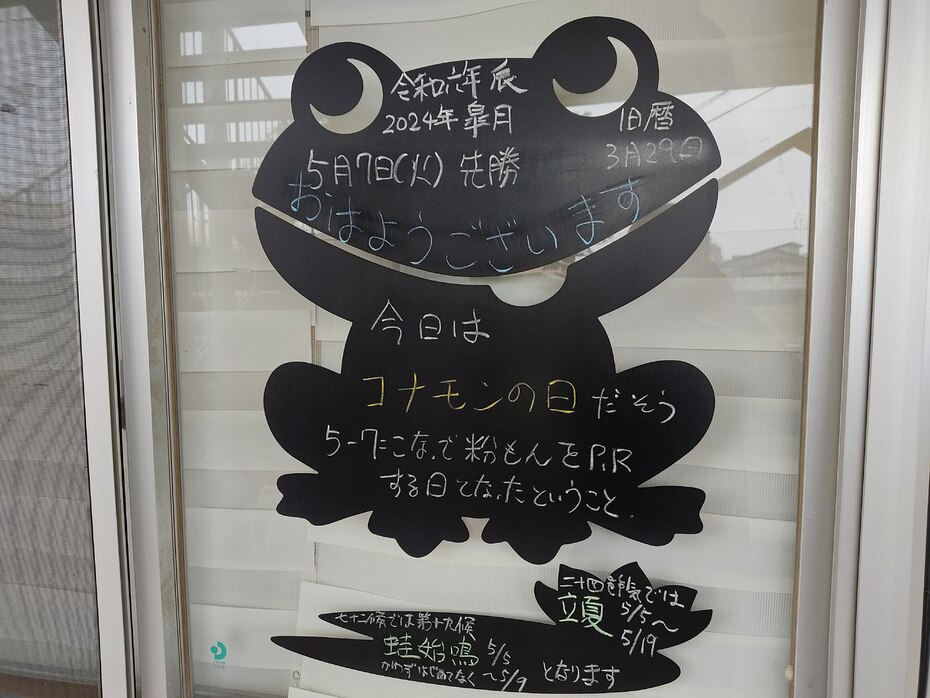 令和六年 辰
2024年 皐月
旧暦
3月29日
5月7日(火) 先勝
おはようございます
今日は
コナモンの日だそう
5-7=こな、で 粉もんをP.R
する日となったということ.
二十四節気では
立夏 5/5〜
5/19
七十二候では第十九候
蛙始鳴 5/5
かわずはじめてなく 〜5/9 となります